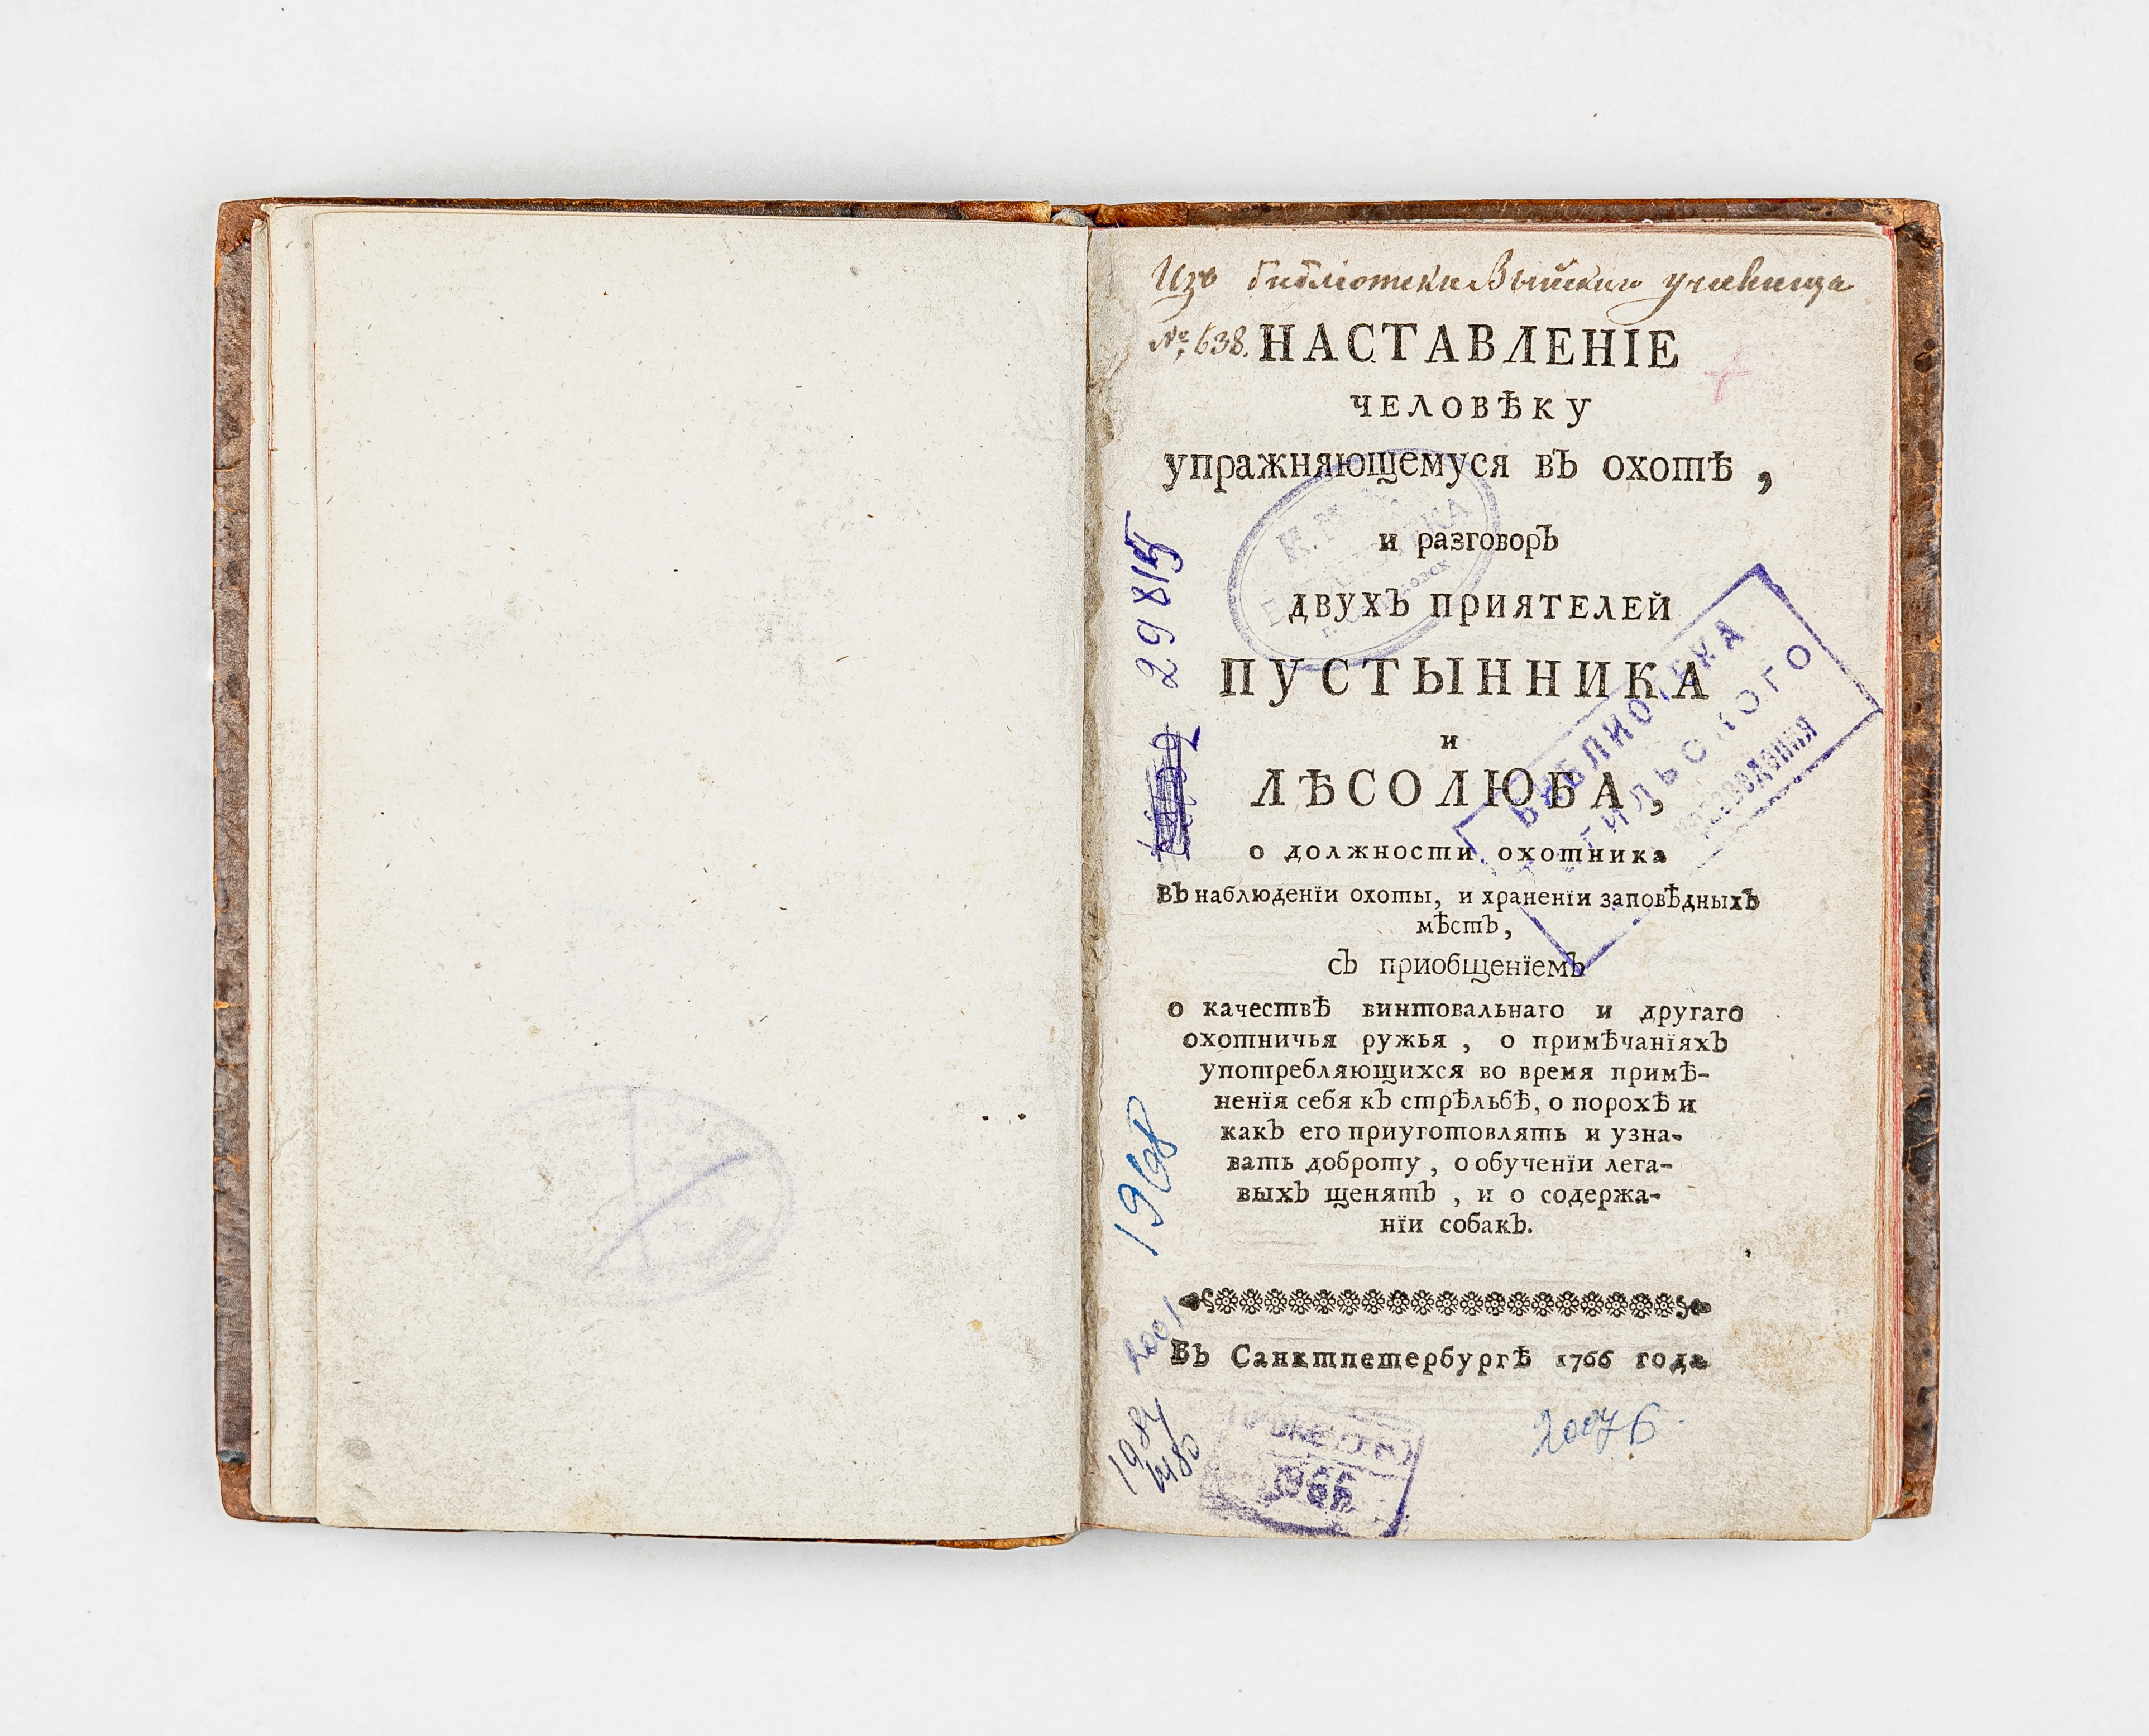 Изъ библіотеки Выйскаго училища
№ 638.
НАСТАВЛЕНІЕ
ЧЕЛОВѢКУ
упражняющемуся въ охотѣ,
и разговоръ
двухъ приятелей
ПУСТЫННИКА
и
ЛѢСОЛЮБА,
о должности охотника
въ наблюденїи охоты, и храненїи заповѣдныхъ
мѣстъ,
съ приобщенїемъ
о качествѣ винтовальнаго и другаго
охотничья ружья, о примѣчанїяхъ
употребляющихся во время примѣ-
ненїя себя къ стрѣльбѣ, о порохѣ и
какъ его приуготовлять и узна-
вать доброту, о обученїи лега-
выхъ щенятъ, и о содержа-
нїи собакъ.
Въ Санктпетербургѣ 1766 года
29815
1968
2001
1984
БИБЛИОТЕКА